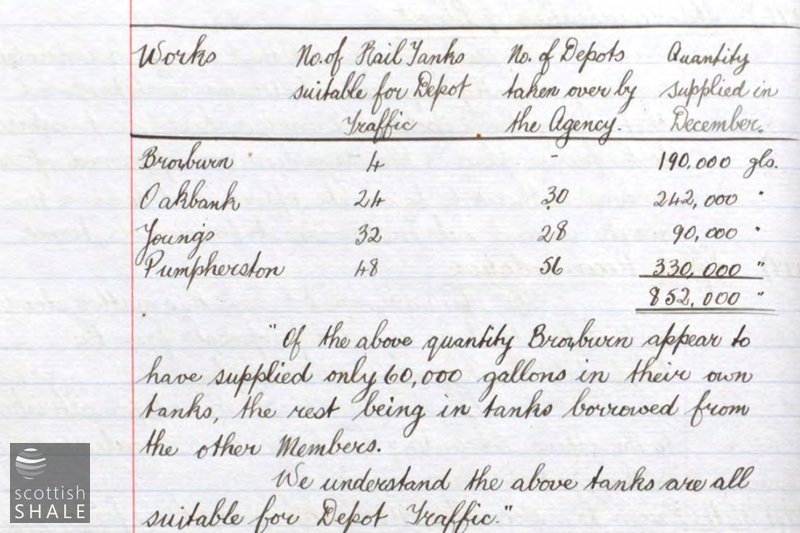 Works No. of Rail Tanks No. of Depots Quantity
suitable for Depot taken over by supplied in
Traffic the Agency. December.
Broxburn 4 - 190,000 gls.
Oakbank 24 30 242,000 "
Young's 32 28 90,000 "
Pumpherston 48 56 330,000 "
852,000 "
"Of the above quantity Broxburn appear to
have supplied only 60,000 gallons in their own
tanks, the rest being in tanks borrowed from
the other Members.
We understand the above tanks are all
suitable for Depot Traffic."
scottish
SHALE